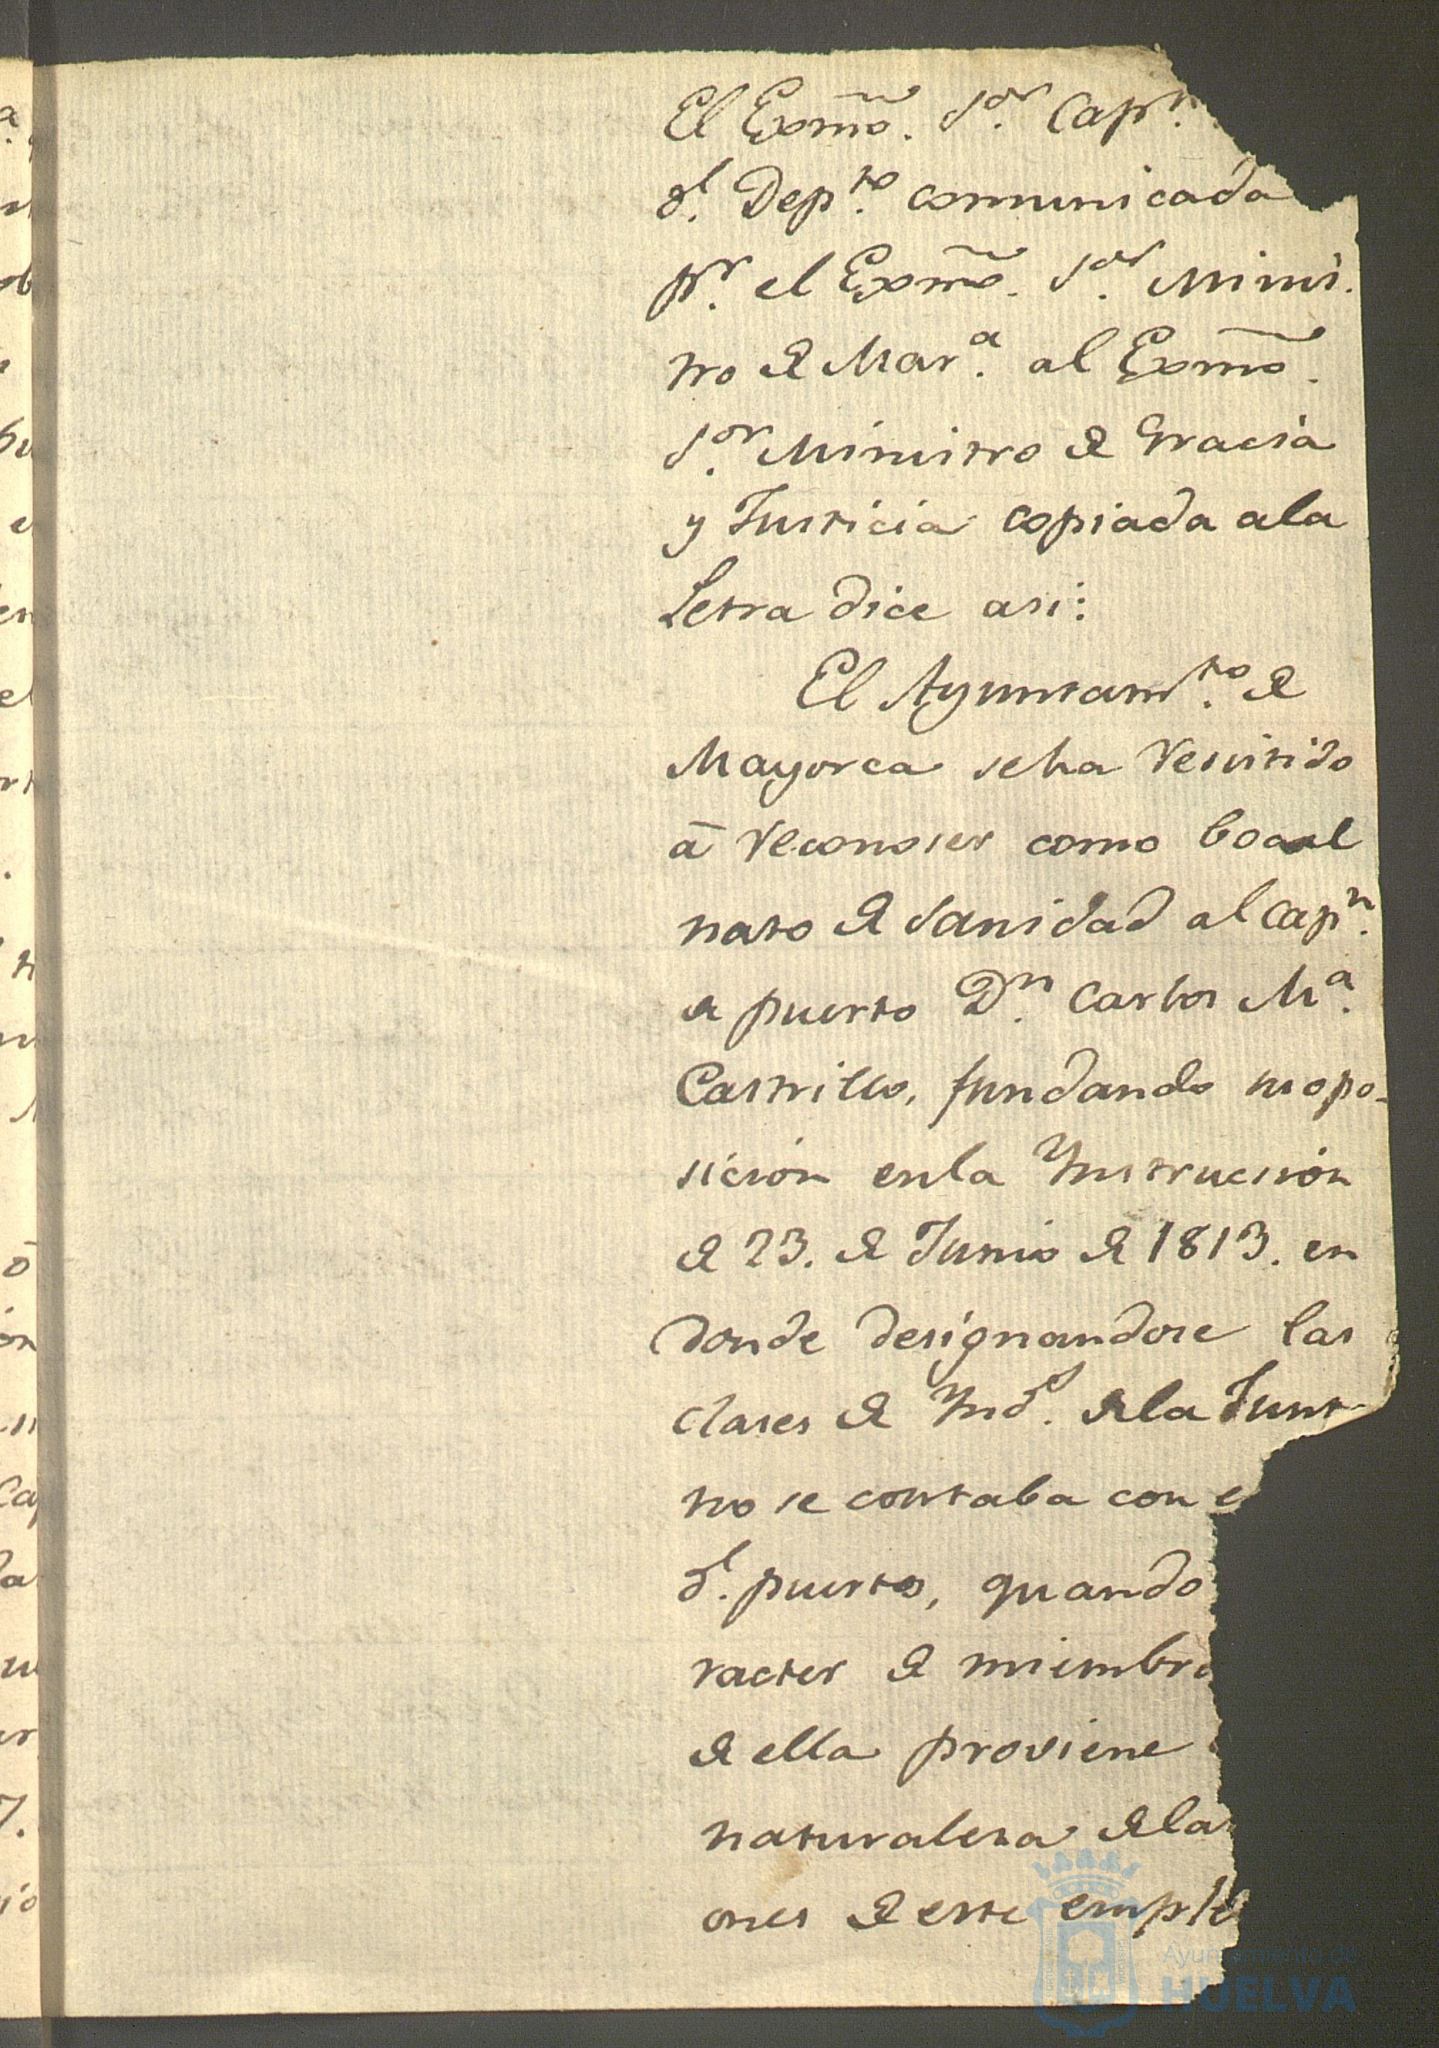 El Exmô. Sor. Capn.
dl. Depto. comunicada
pr. el Exmô. Sor. Minis.
tro de Mara. al Exmô.
Sor. Ministro de Gracia
y Justicia copiada ala
Letra dice asi:
El Ayuntamto. de
Mayorca seha resistido
á reconoser como bocal
nato de Sanidad al capn.
de puerto Dn. Carlos Ma.
Castrillo, fundando su opo-
sición enla Ynstrucsion
de 23. de Junio de 1813. en
donde designandose las
clases de Ynds. dela Junt
no se contaba con e
dl. puerto, quando
racter de miembro
de ella proviene
naturalesa dela
ones de este emple
Ayuntamiento de
HUELVA